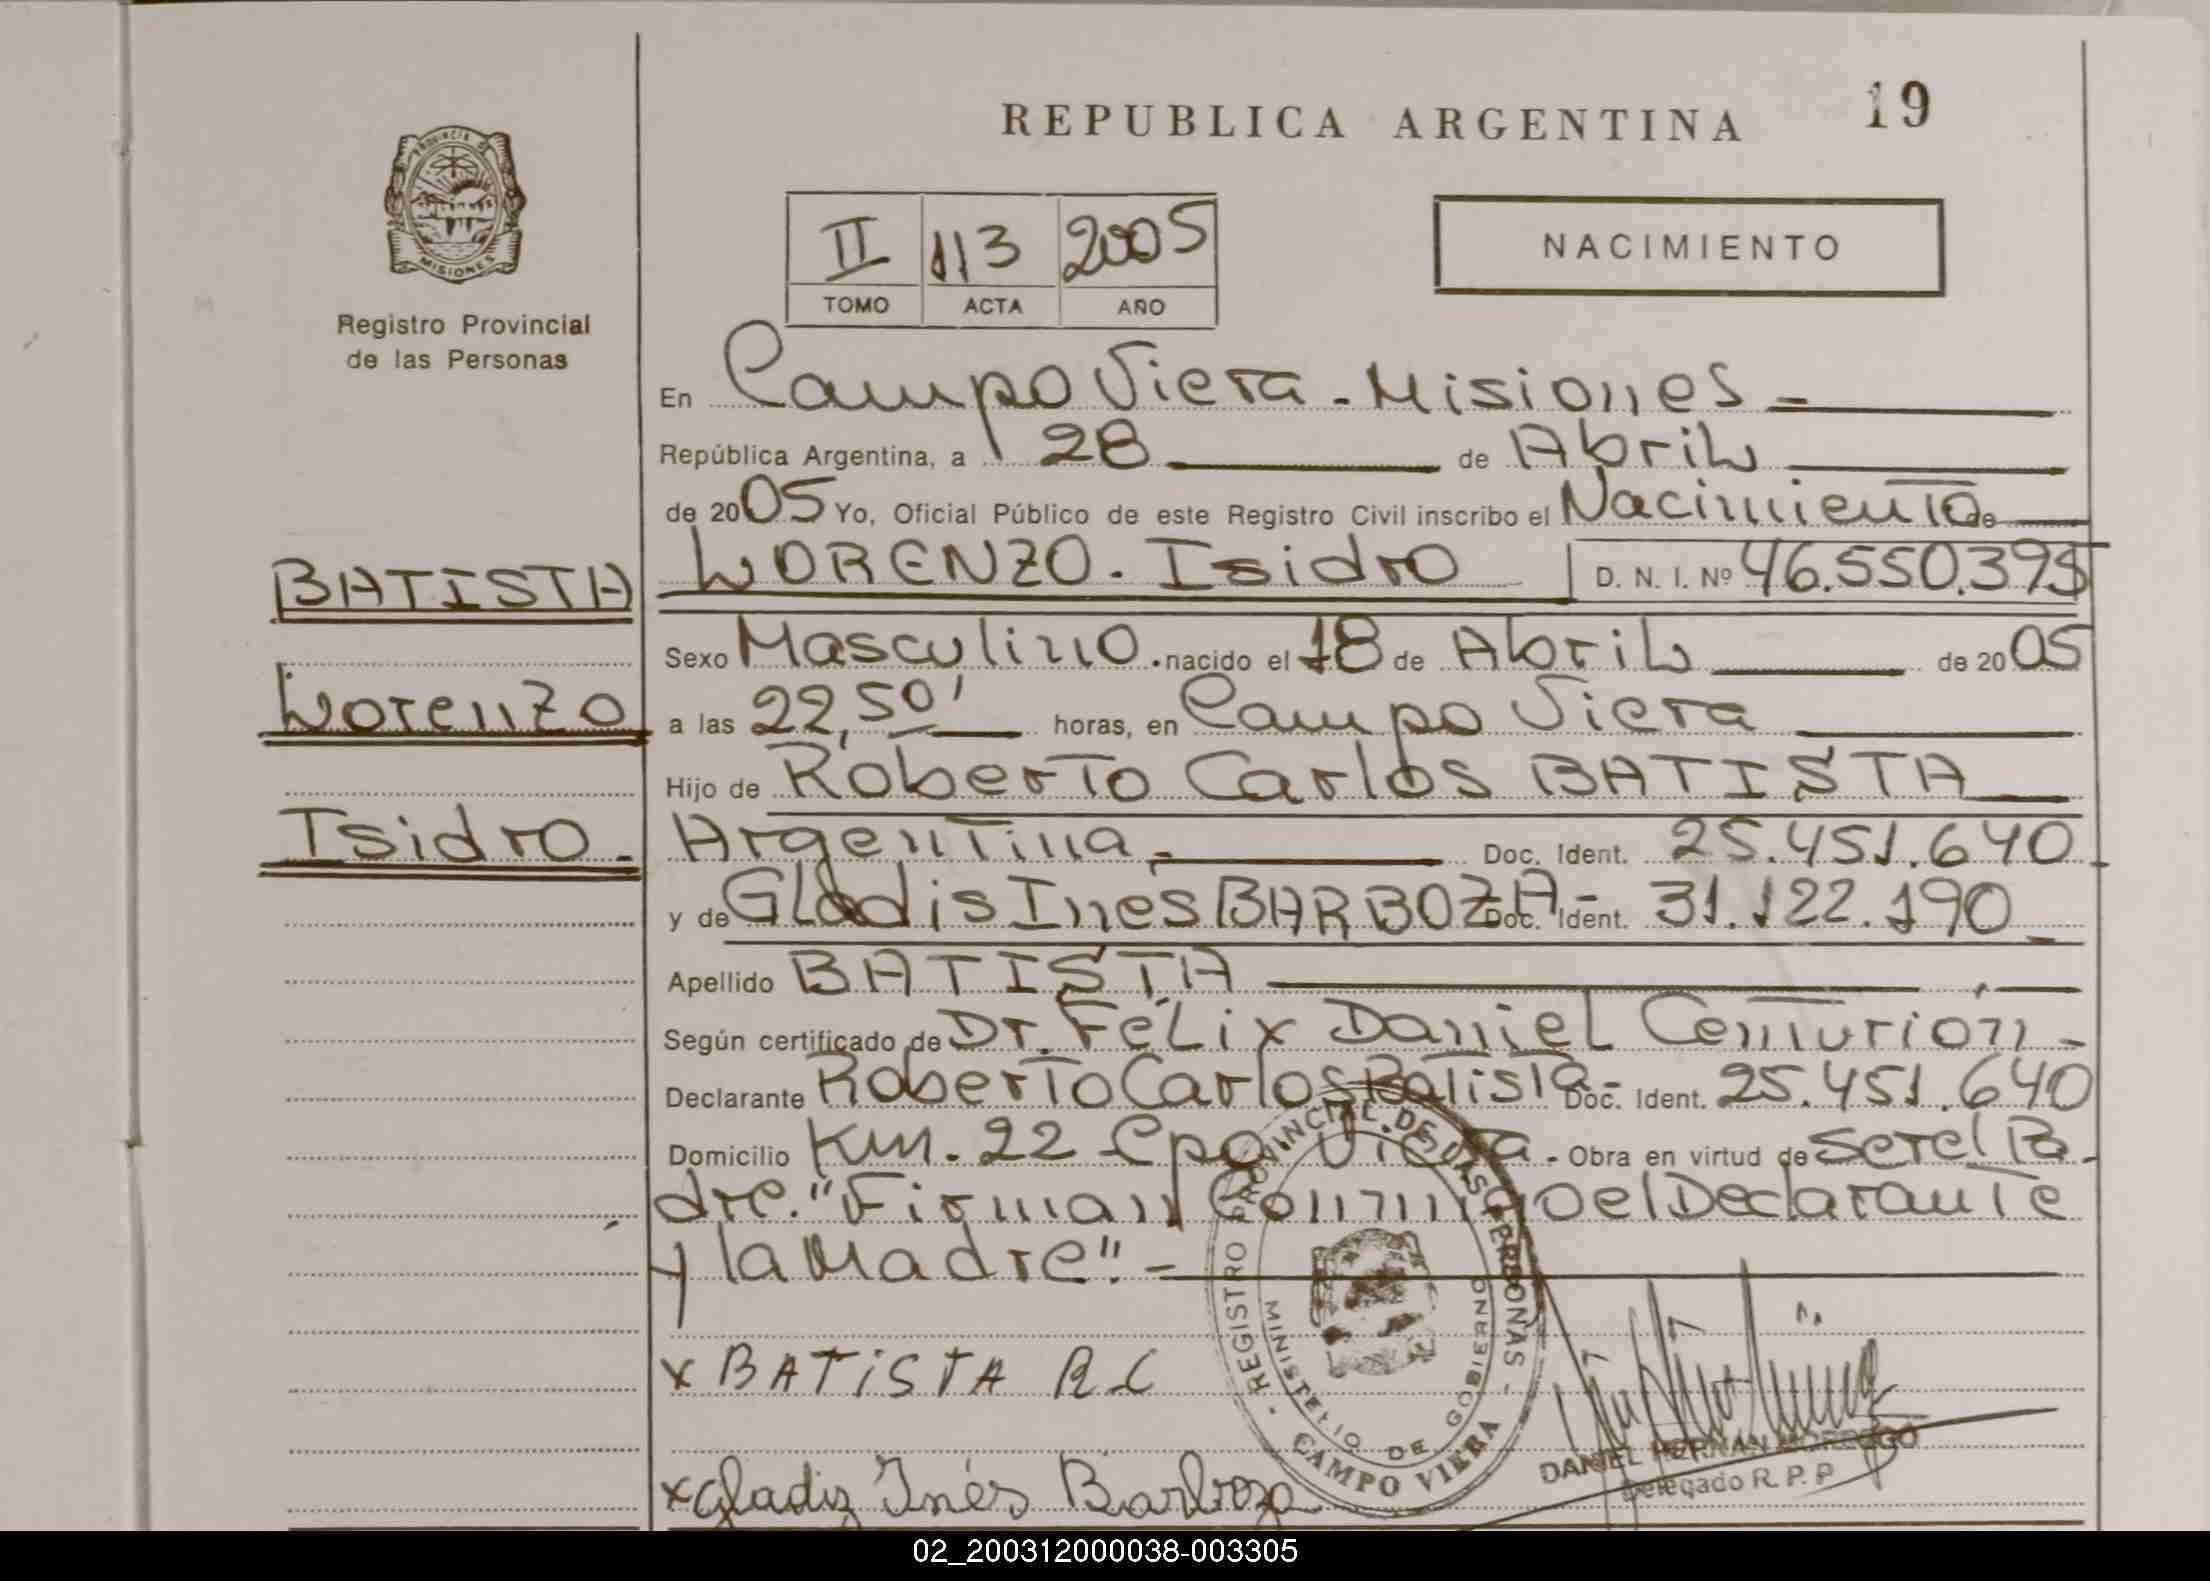 REPUBLICA ARGENTINA
19
PROVINCIA DE
MISIONES
Registro Provincial
de las Personas
II 113 2005
TOMO ACTA AÑO
NACIMIENTO
En Campo Viera - Misiones -
República Argentina, a 28 de Abril
de 2005 Yo, Oficial Público de este Registro Civil inscribo el Nacimiento de
BATISTA
LORENZO. Isidro D. N. I. Nº 46.550.395
Sexo Masculino. nacido el 18 de Abril de 2005
Lorenzo
a las 22,50' horas, en Campo Viera
Hijo de Roberto Carlos BATISTA
Isidro.
Argentina,- Doc. Ident. 25.451.640
y de Gladis Inés BARBOZA- Doc. Ident. 31.122.190
Apellido BATISTA
Según certificado de Dr. Félix Daniel Centurión -
Declarante Roberto Carlos Batista- Doc. Ident. 25.451.640
Domicilio Km. 22 Cpo Viera - Obra en virtud de ser el Pa-
dre. "Firman Conmigo el Declarante
y la Madre".-
REGISTRO PROVINCIAL DE LAS PERSONAS - CAMPO VIERA
MINISTERIO DE GOBIERNO
x BATISTA R.C
x Gladiz Inés Barboza
DANIEL HERNAN
Delegado R. P. P
02_200312000038-003305